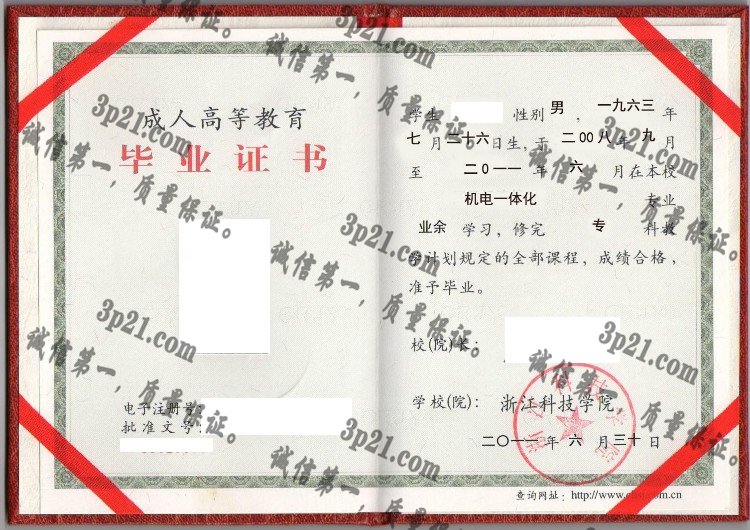 成人高等教育
毕业证书
电子注册号：
批准文号：
学生 性别 男 ，一九六三 年
七 月 二十六 日生，于 二00八 年 九 月
至 二0一一 年 六 月在本校
机电一体化 专业
业余 学习，修完 专 科教
学计划规定的全部课程，成绩合格，
准予毕业。
校(院)长：
学校(院)：浙江科技学院
二〇一一年 六 月 三十 日
查询网址：http://www.chsi.com.cn
浙江科技学院
3p21.com
诚信第一，质量保证。
3p21.com
诚信第一，质量保证。
3p21.com
诚信第一，质量保证。
3p21.com
诚信第一，质量保证。
3p21.com
诚信第一，质量保证。
3p21.com
诚信第一，质量保证。
3p21.com
诚信第一，质量保证。